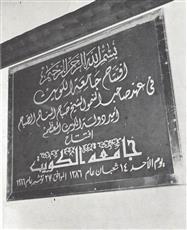 بسم الله الرحمن الرحيم
افتتاح جامعة الكويت
في عهد صاحب السمو الشيخ صباح السالم الصباح
أمير دولة الكويت المعظم
افتتاح
جامعة الكويت
يوم الأحد ١٤ شعبان عام ١٣٨٦ الموافق ٢٧ نوفمبر عام ١٩٦٦